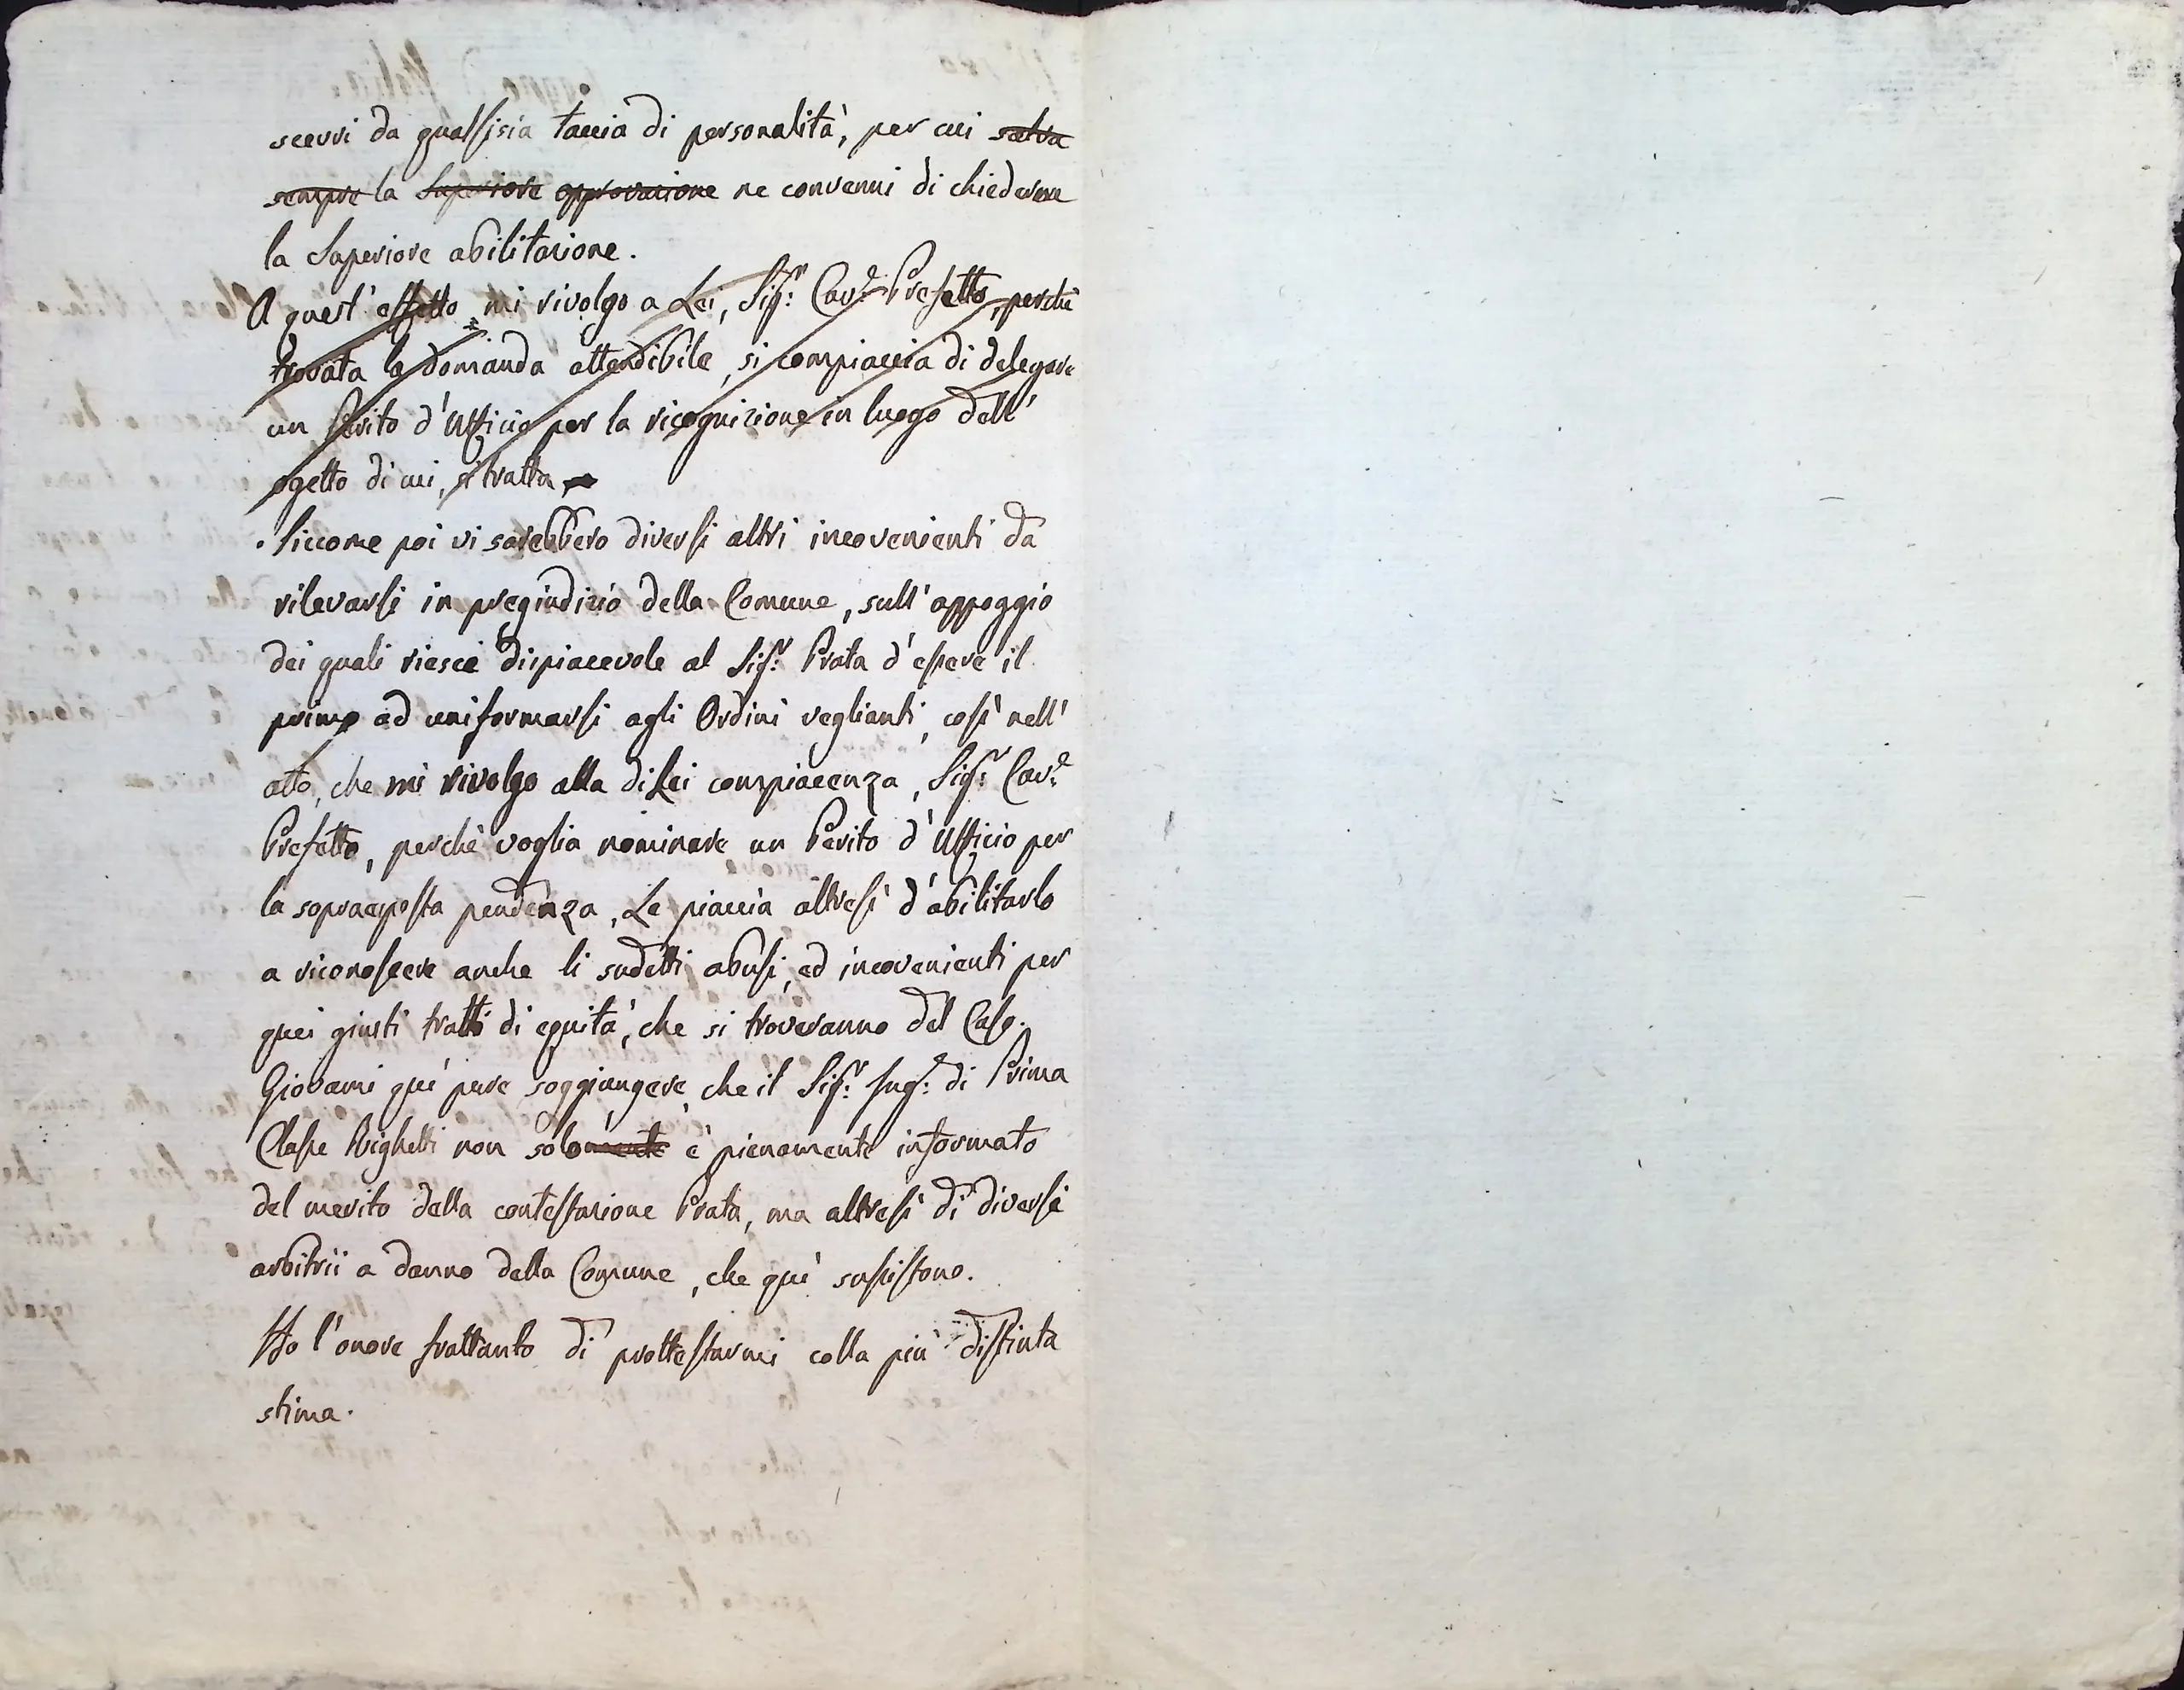 scevri da qualsisia taccia di personalità, per cui salva
sempre la Superiore approvazione ne convenni di chiederne
la Superiore abilitazione.
A quest' effetto mi rivolgo a Lei, Sig.r Cav.e Prefetto, perchè
trovata la domanda attendibile, si compiaccia di delegare
un Perito d'Ufficio per la ricognizione in luogo dell'
ogetto di cui, si tratta
Siccome poi vi sarebbero diversi altri incovenienti da
rilevarsi in pregiudizio della Comune, sull'appoggio
dei quali riesce dispiacevole al Sig.r Prata d'essere il
primo ad uniformarsi agli Ordini veglianti, così nell'
atto, che mi rivolgo alla di Lei compiacenza, Sig.r Cav.e
Prefetto, perchè voglia nominare un Perito d'Ufficio per
la sopraesposta pendenza, Le piaccia altresì d'abilitarlo
a riconoscere anche li sudetti abusi, ed incovenienti per
quei giusti tratti di equità, che si troveranno del Caso.
Giovami quì pure soggiungere, che il Sig.r Ing.e di Prima
Classe Righetti non solamente è pienamente informato
del merito della contestazione Prata, ma altresì di diversi
arbitrii a danno della Comune, che quì sussistono.
Ho l'onore frattanto di prottestarmi colla più distinta
stima.